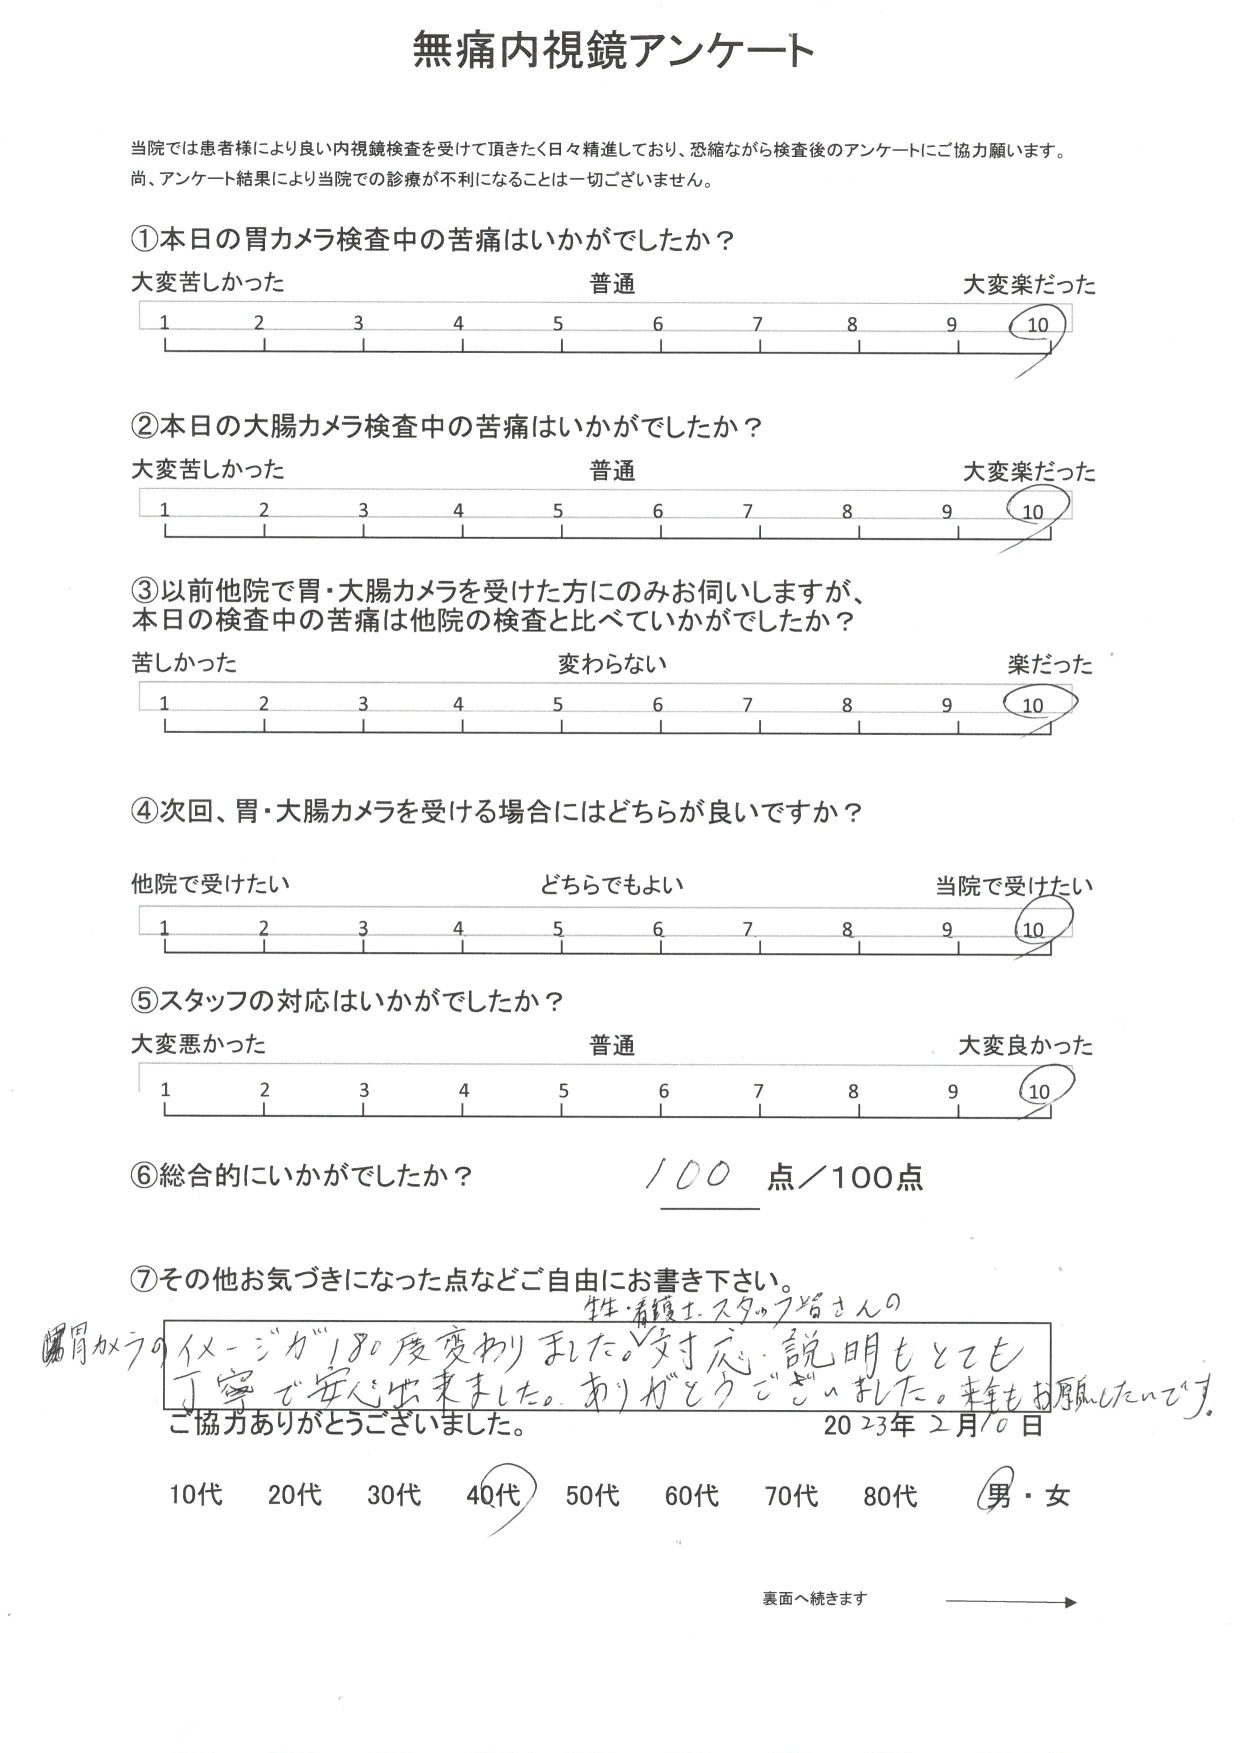 無痛内視鏡アンケート
当院では患者様により良い内視鏡検査を受けて頂きたく日々精進しており、恐縮ながら検査後のアンケートにご協力願います。
尚、アンケート結果により当院での診療が不利になることは一切ございません。
①本日の胃カメラ検査中の苦痛はいかがでしたか？
大変苦しかった 普通 大変楽だった
1 2 3 4 5 6 7 8 9 10
②本日の大腸カメラ検査中の苦痛はいかがでしたか？
大変苦しかった 普通 大変楽だった
1 2 3 4 5 6 7 8 9 10
③以前他院で胃・大腸カメラを受けた方にのみお伺いしますが、
本日の検査中の苦痛は他院の検査と比べていかがでしたか？
苦しかった 変わらない 楽だった
1 2 3 4 5 6 7 8 9 10
④次回、胃・大腸カメラを受ける場合にはどちらが良いですか？
他院で受けたい どちらでもよい 当院で受けたい
1 2 3 4 5 6 7 8 9 10
⑤スタッフの対応はいかがでしたか？
大変悪かった 普通 大変良かった
1 2 3 4 5 6 7 8 9 10
⑥総合的にいかがでしたか？ 100 点／100点
⑦その他お気づきになった点などご自由にお書き下さい。
先生・看護士、スタッフ皆さんの
胃カメラのイメージが180度変わりました。対応・説明もとても
丁寧で安心出来ました。ありがとうございました。来年もお願いしたいです。
ご協力ありがとうございました。 2023年2月10日
10代 20代 30代 40代 50代 60代 70代 80代 男・女
裏面へ続きます